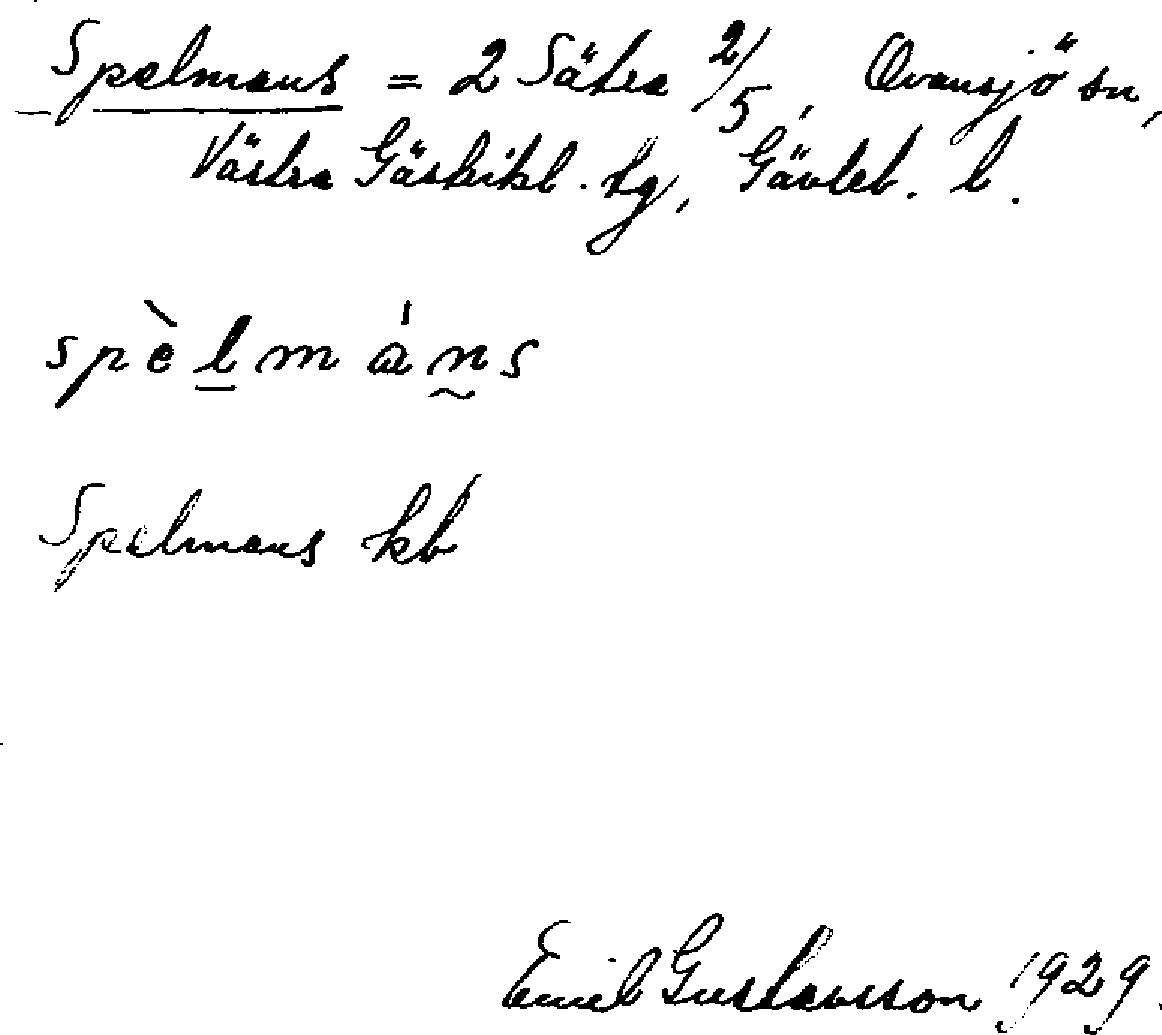 Spelmans = 2 Sätra 2/5, Ovansjö sn,
Västra Gästrikl. tg, Gävleb. l.
spèlmáns
Spelmans kb
Emil Gustavsson 1929.